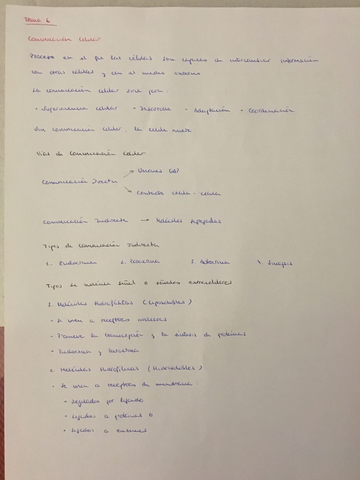 Tema 2
Comunicación celular
Proceso en el que las células son capaces de intercambiar información
con otras células y con el medio externo
La comunicación celular sirve para
• Supervivencia celular • Desarrollo • Adaptación • Coordinación
Sin comunicación celular, la célula muere
Vías de comunicación celular
Comunicación Directa → Uniones GAP
→ Contacto célula - célula
Comunicación Indirecta → Moléculas
Tipos de Comunicación Indirecta
1. Endocrina 2. Paracrina 3. Autocrina 4. Sinapsis
Tipos de molécula señal o señales extracelulares
1. Moléculas Hidrofóbicas (Liposolubles)
• Se unen a receptores
• la transcripción y la síntesis de proteínas
• Endocrina y Paracrina
2. Moléculas Hidrofílicas (Hidrosolubles)
• Se unen a receptores de membrana
• por ligando
• Ligados a proteínas G
• Ligados a enzimas